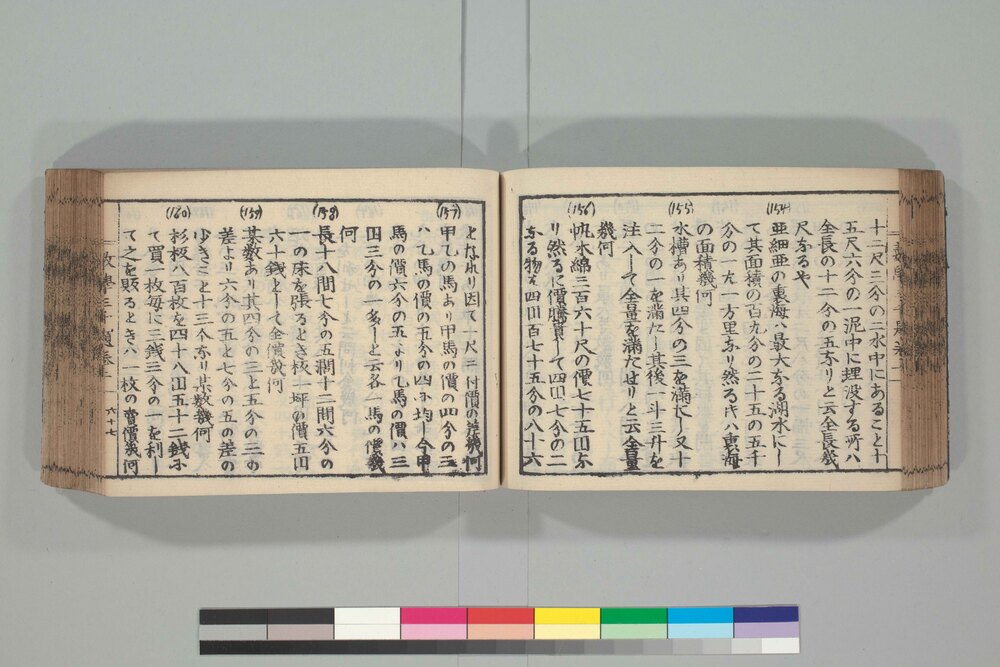 十二尺二分の二水中にあること十
五尺六分の一泥中に埋没する所ハ
全長の十二分の五ナリと云全長幾
尺なるや
(154)
亜細亜の裏海ハ最大なる湖水にし
て其面積の百九分の二十五の五千
分の一九一方里ナリ然るトキハ裏海
の面積幾何
(155)
水槽あり其四分の三を満たし又十
二分の一を満たし其後一斗三升を
注入して全量を満たせりと云全量
幾何
(156)
帆木綿三百六十尺の價七十五円ナ
リ然るに價騰貴して四円七分の二
なる物を四円百七十五分の八十六
となれり因て一尺ニ付價の差幾何
(157)
甲乙の馬あり甲馬の價の四分の三
ハ乙馬の價の五分の四ニ均し今甲
馬の價六分の五より乙馬の價ハ三
円三分の一多しと云各一馬の價幾
何
(158)
長十八間七分の五濶十二間六分の
一の床を張るとき板一坪の價五円
六十銭として全價幾何
(159)
某数あり其四分の三と五分の三の
差より六分の五と七分の五の差の
少きこと十三个ナリ某数幾何
(160)
杉板八百枚を四十八円五十二銭ニ
て買一枚毎に三銭三分の一を利し
て之を販るときハ一枚の賣價幾何
六十七